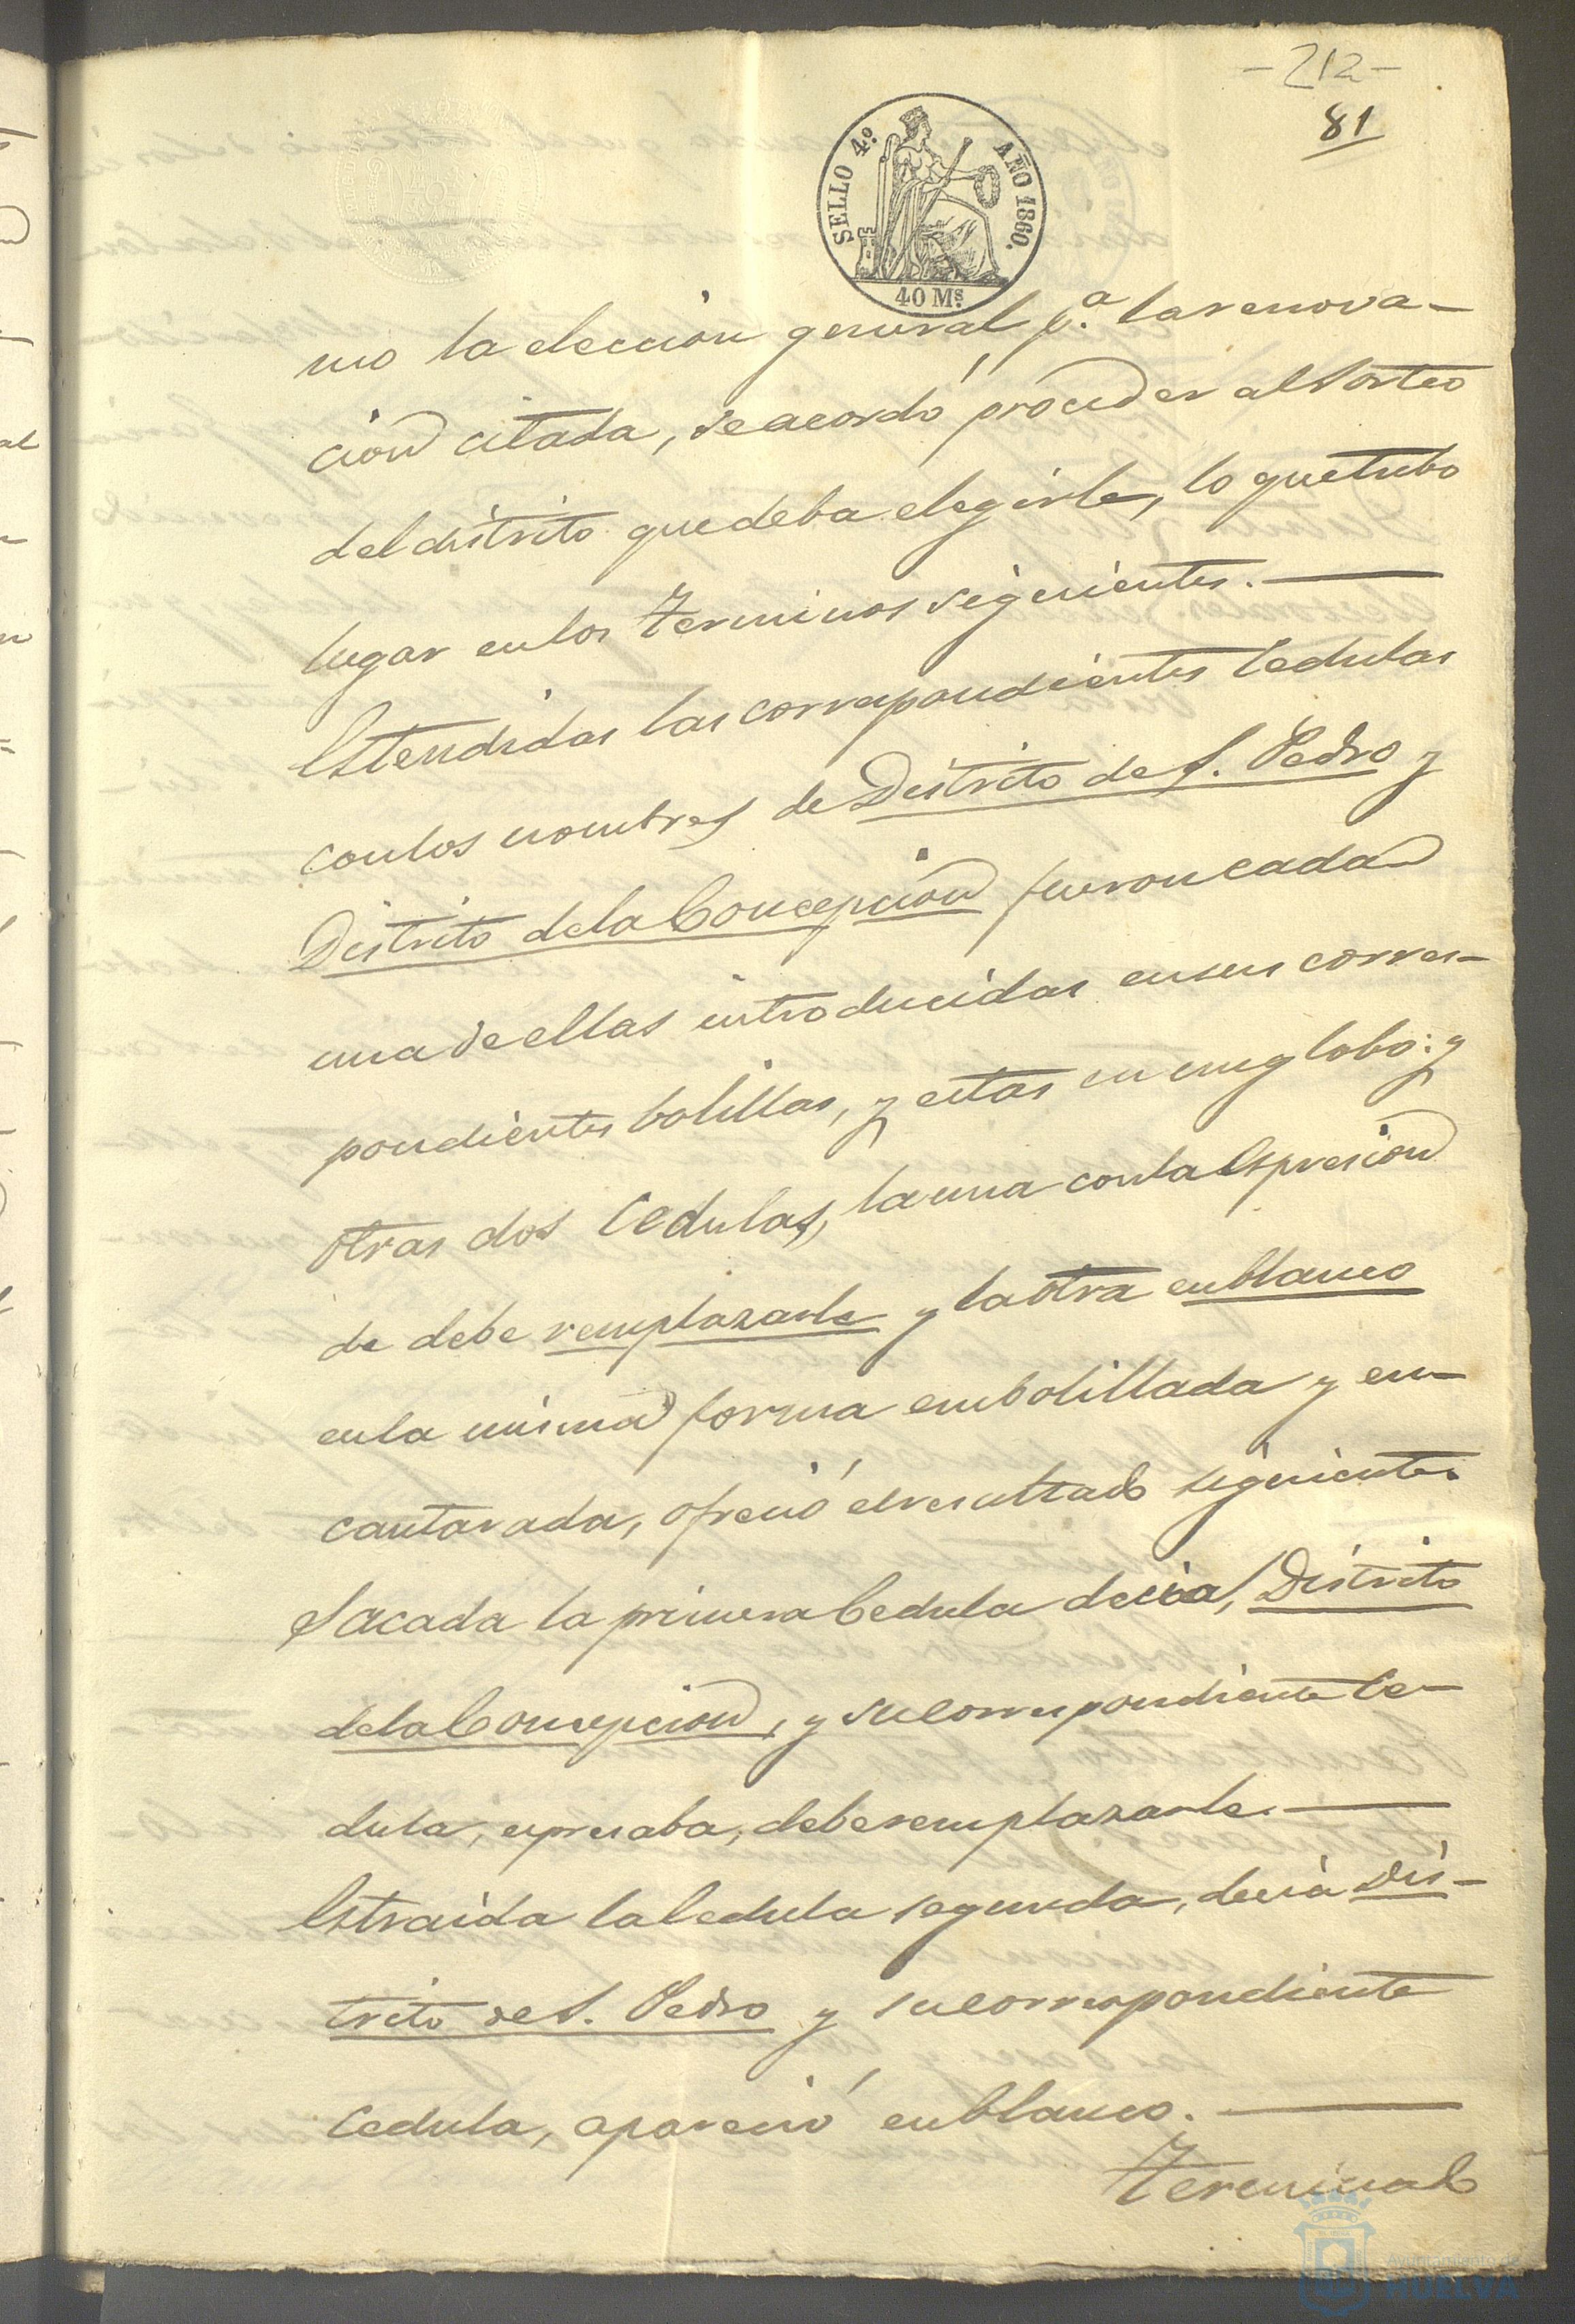 -212-
81
SELLO 4.º AÑO 1860.
40 Mˢ.
mo la eleccion general p.ª la renova-
cion citada, se acordó proceder al sorteo
del distrito que deba elegirle, lo que tubo
lugar en los terminos siguientes.—
Estendidas las correspondientes Cedulas
con los nombres de Distrito de S. Pedro y
Distrito de la Concepcion fueron cada
una de ellas introducidas en sus corres-
pondientes bolillas, y estas en un globo: y
otras dos Cedulas, la una con la espresion
de debe remplazarle y la otra en blanco
en la misma forma embolillada y en-
cantarada, ofreció el resultado siguiente.
Sacada la primera Cedula decia, Distrito
de la Concepcion, y su correspondiente Ce-
dula, espresaba, debe remplazarle.—
Estraida la Cedula segunda, decia Dis-
trito de S. Pedro y su correspondiente
Cedula, apareció en blanco.—
Terminado
Ayuntamiento de
HUELVA